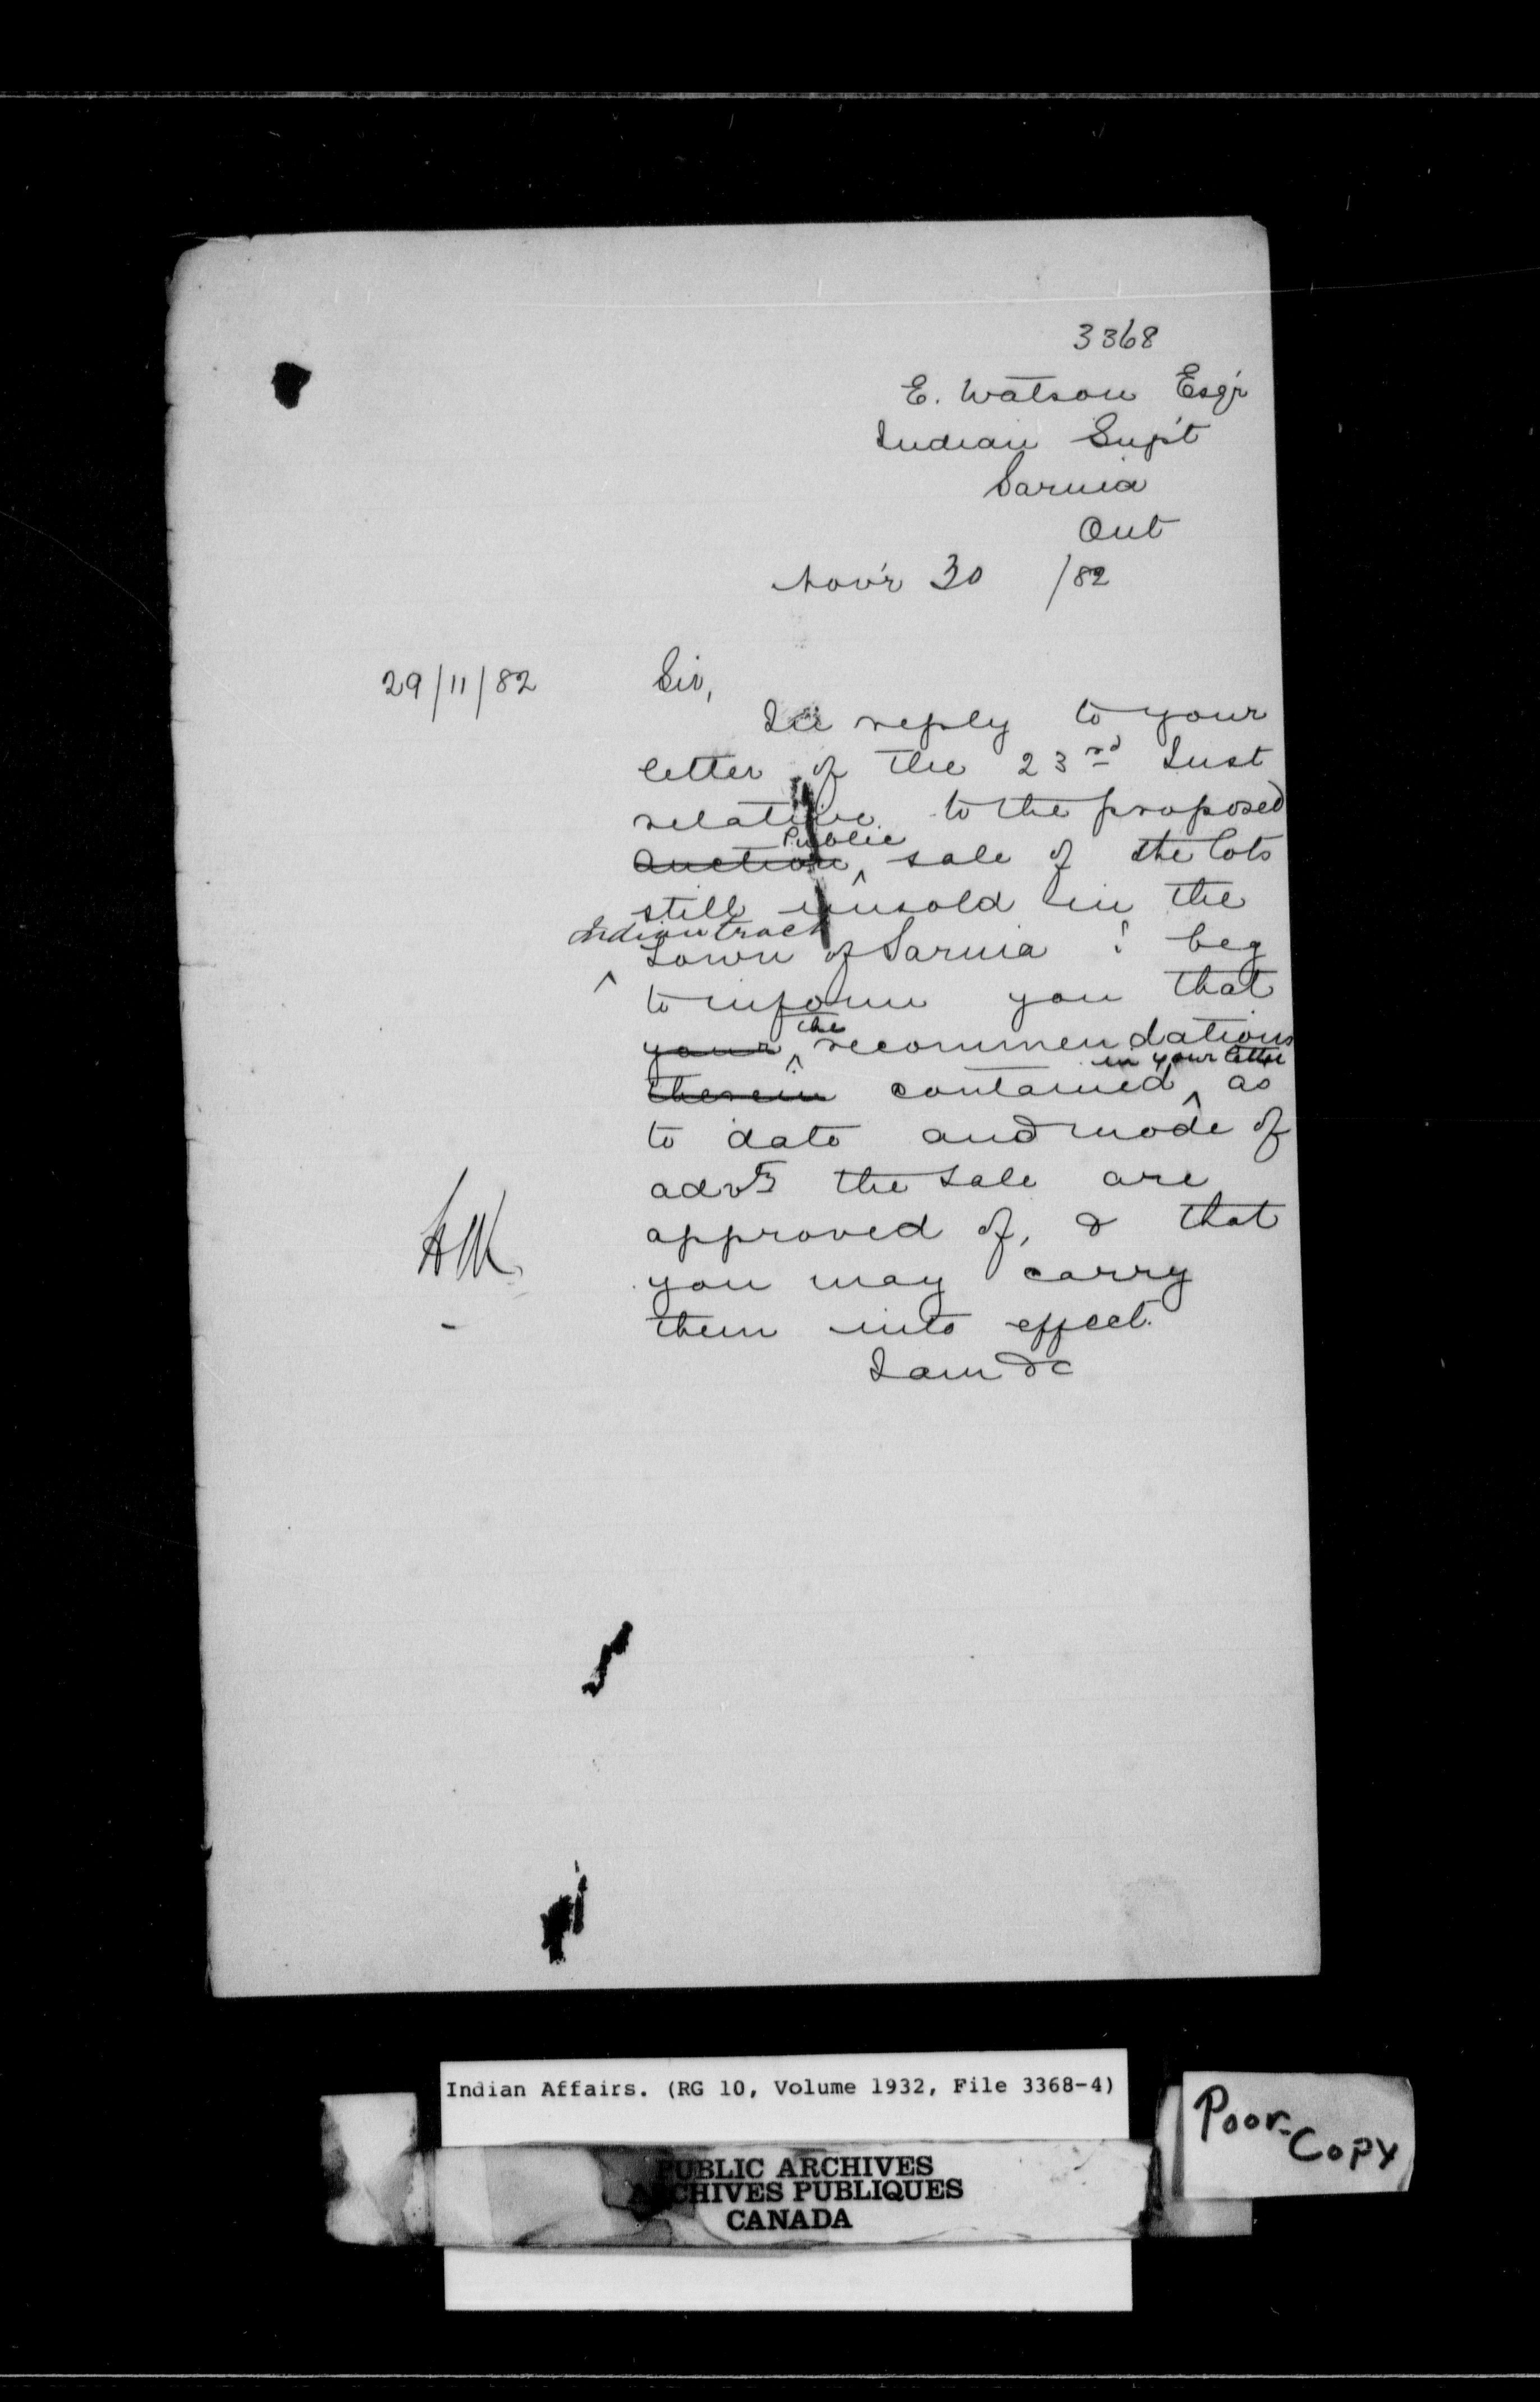 3368
E. Watson Esq'r
Indian Sup't
Sarnia
Ont
Nov'r 30 /82
29/11/82
Sir,
In reply to your
letter of the 23rd Inst
relative to the proposed
Auction Public sale of the lots
still unsold in the
Indian tract
Town of Sarnia I beg
to inform you that
your the recommendations
therein contained in your letter as
to date and mode of
advtg the sale are
approved of, & that
you may carry
them into effect.
I am &c
Indian Affairs. (RG 10, Volume 1932, File 3368-4)
PUBLIC ARCHIVES
ARCHIVES PUBLIQUES
CANADA
Poor-
Copy